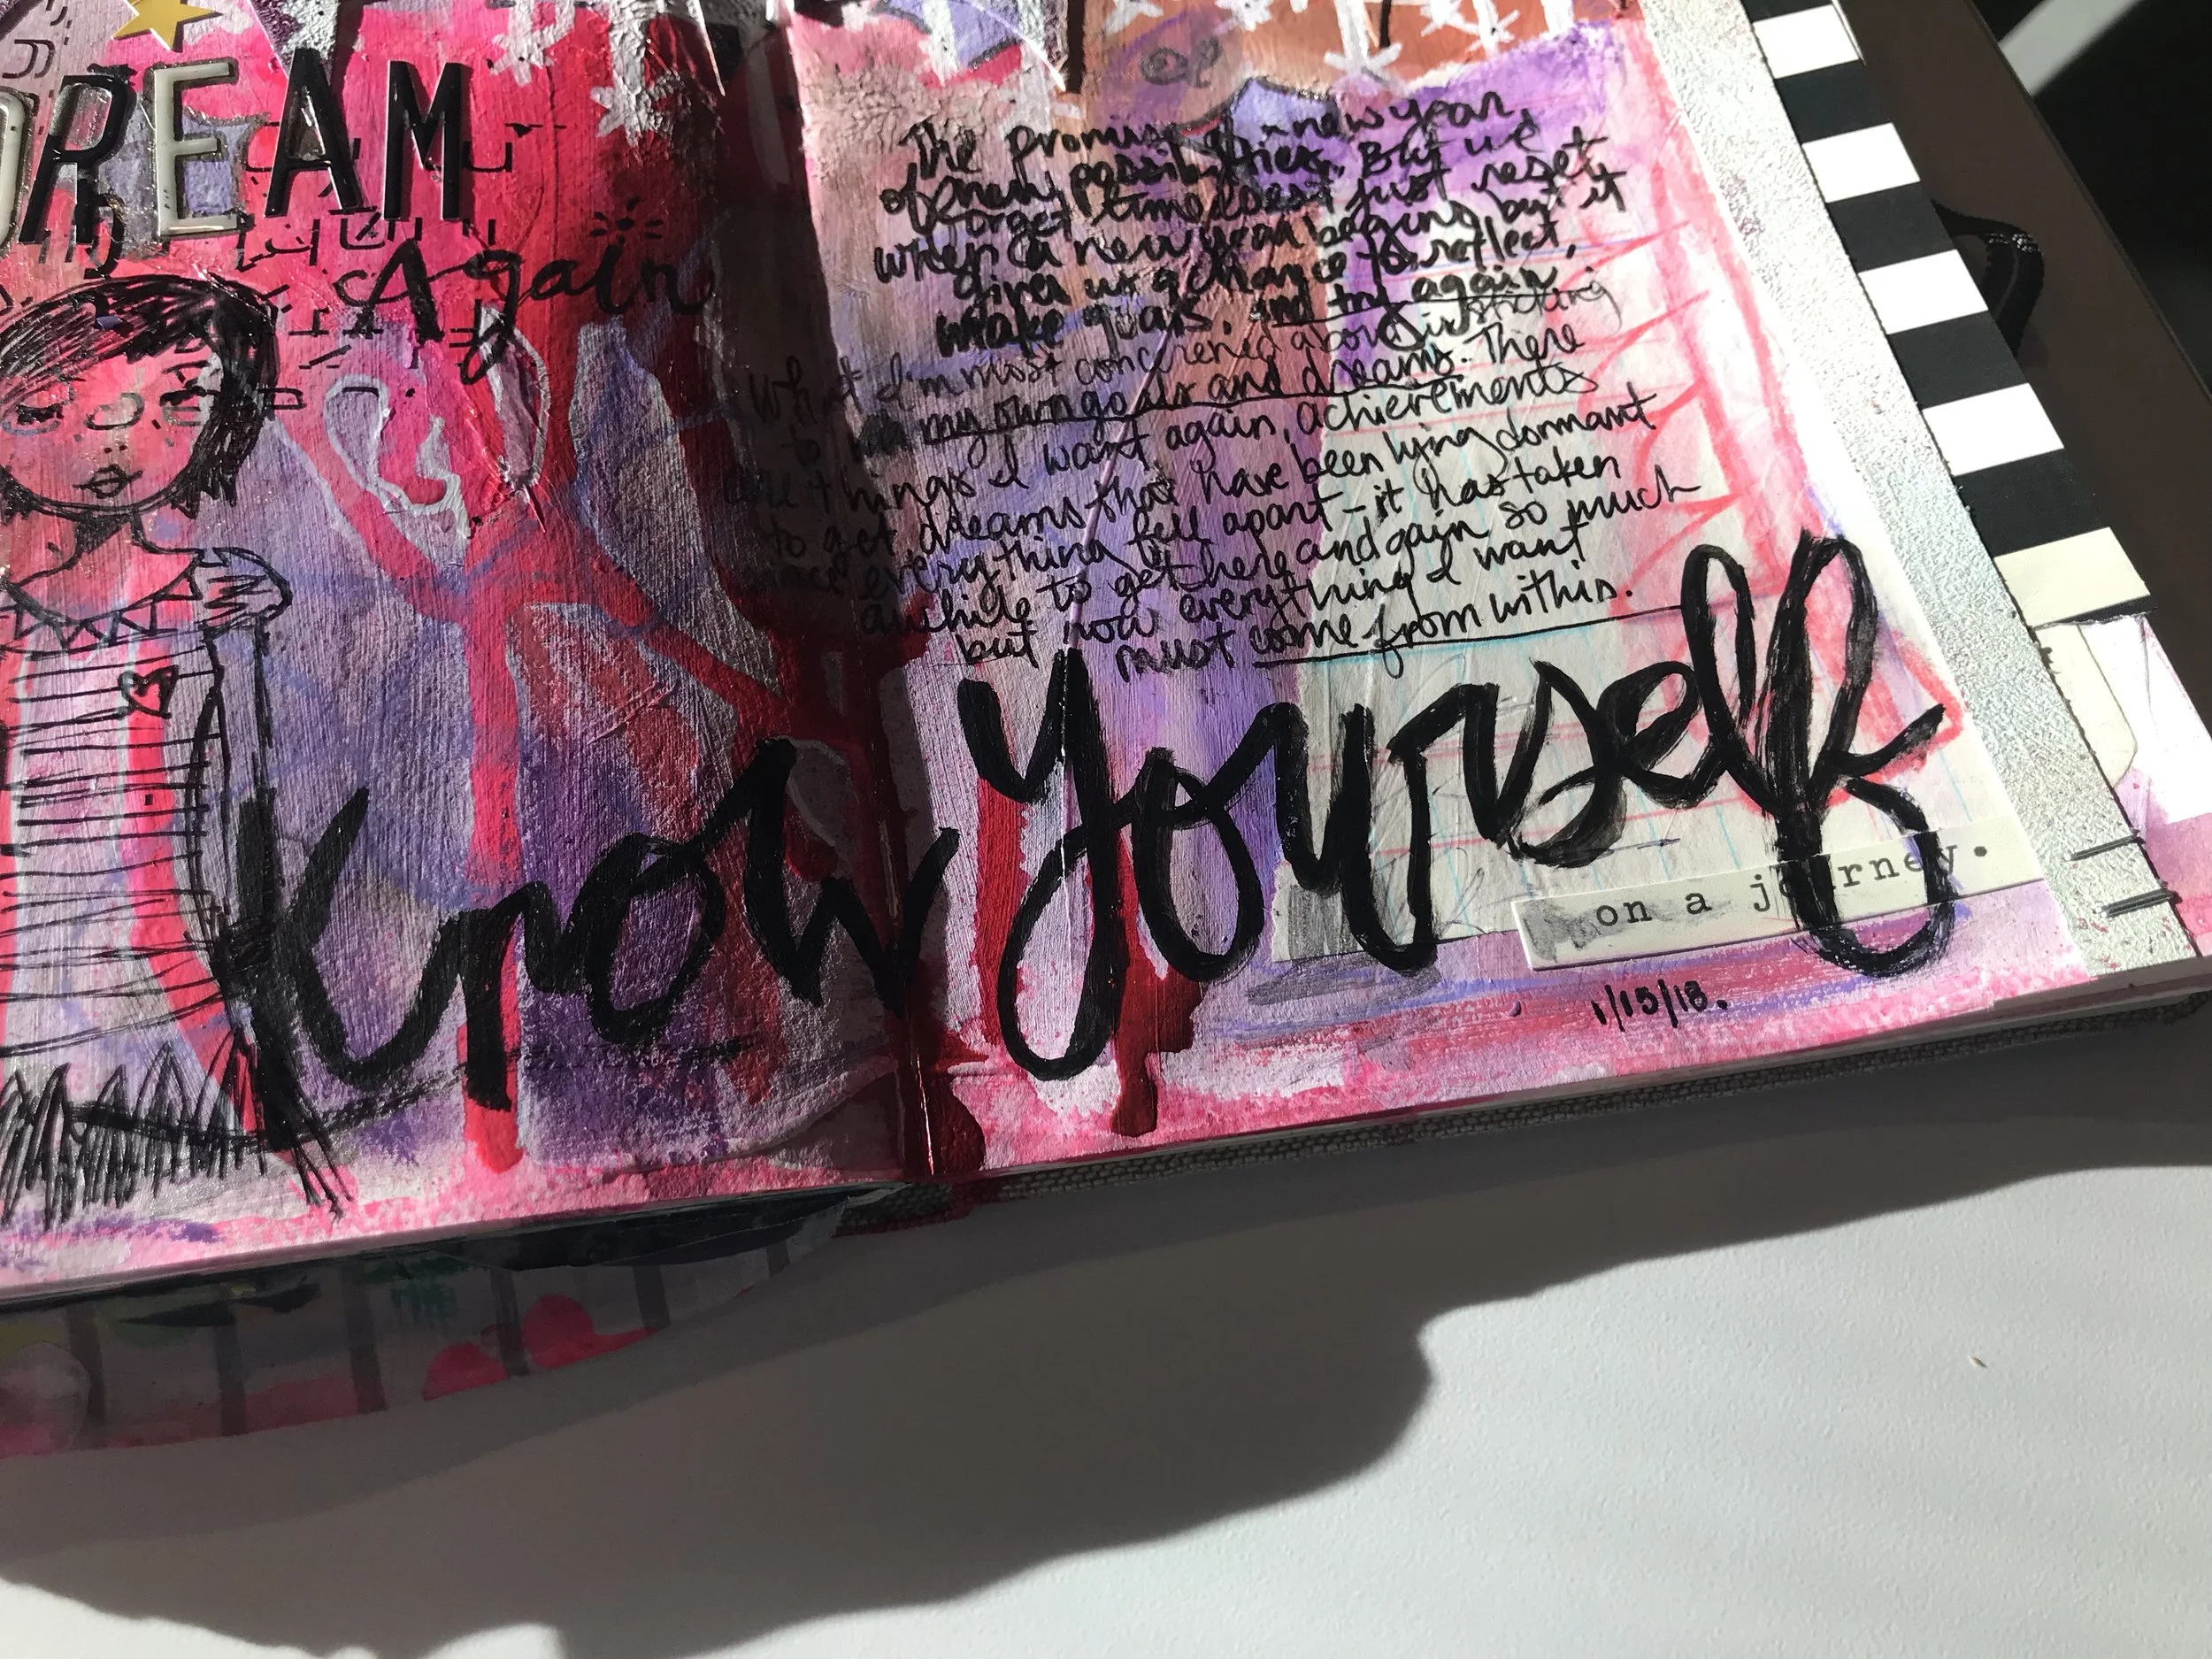 DREAM
Again
The promise of a new year
of new possibilities. But we
forget time doesn't just reset
when a new year begins but it
gives us a chance to reflect,
make goals. and try again.
What I'm most concerened about is sticking
to my own goals and dreams. There
are things I want again, achievements
to get, dreams that have been lying dormant
since everything fell apart - it has taken
awhile to get here and gain so much
but now everything I want
must come from within.
Know Yourself
on a journey.
1/15/18.